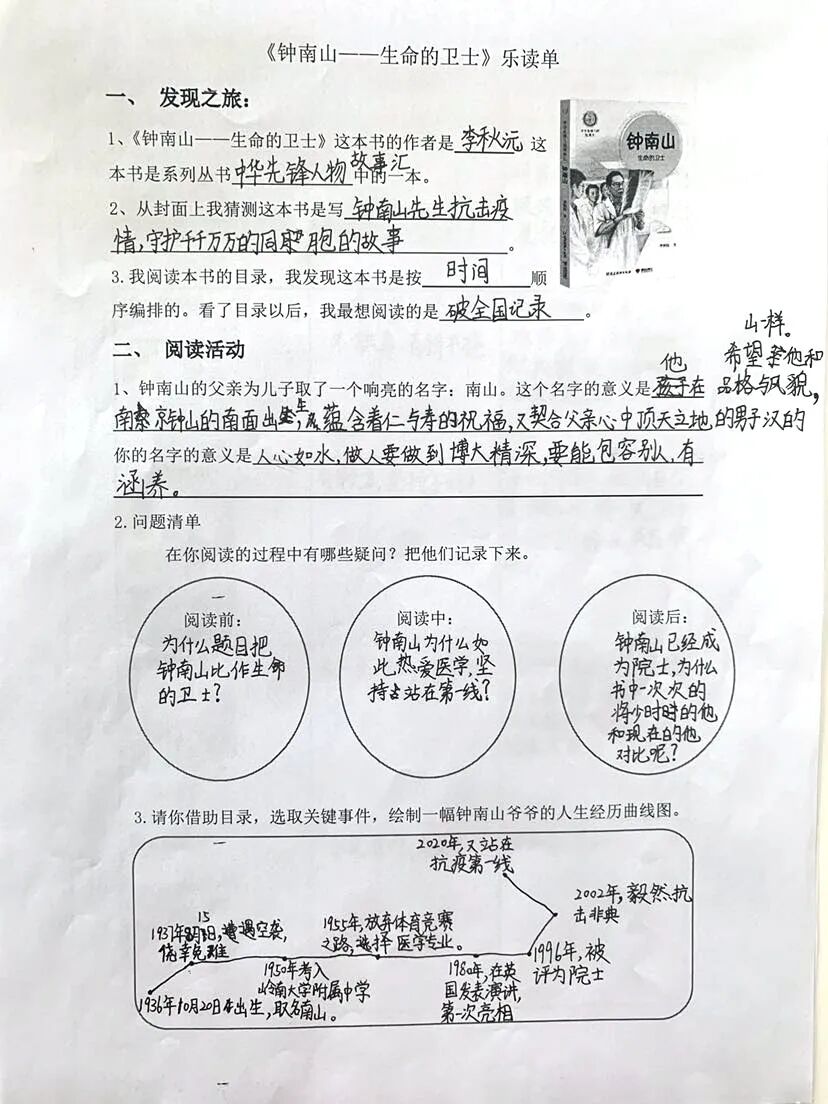 《钟南山——生命的卫士》乐读单
一、 发现之旅：
1、《钟南山——生命的卫士》这本书的作者是 李秋沅 这
本书是系列丛书 中华先锋人物故事汇 中的一本。
2、从封面上我猜测这本书是写 钟南山先生抗击疫
情,守护千千万万的同胞的故事 。
3.我阅读本书的目录，我发现这本书是按 时间 顺
序编排的。看了目录以后，我最想阅读的是 破全国记录 。
钟南山
生命的卫士
钟南山
二、 阅读活动
1、钟南山的父亲为儿子取了一个响亮的名字：南山。这个名字的意义是 他在
南京钟山的南面出生,蕴含着仁与寿的祝福,又契合父亲心中顶天立地的男子汉的
品格与风貌,
希望他和
山一样。
你的名字的意义是 人心如水,做人要做到博大精深,要能包容别人,有
涵养。
2.问题清单
在你阅读的过程中有哪些疑问？把他们记录下来。
阅读前：
为什么题目把
钟南山比作生命
的卫士?
阅读中：
钟南山为什么如
此热爱医学,坚
持站在第一线?
阅读后：
钟南山已经成
为院士,为什么
书中一次次的
将少时时的他
和现在的他
对比呢?
3.请你借助目录，选取关键事件，绘制一幅钟南山爷爷的人生经历曲线图。
2020年,又站在
抗疫第一线
2002年,毅然抗
击非典
1937年8月15日,遭遇空袭,
侥幸免难
1955年,放弃体育竞赛
之路,选择医学专业。
1996年,被
评为院士
1936年10月20日出生,取名南山。
1950年考入
岭南大学附属中学
1980年,在英
国发表演讲,
第一次亮相